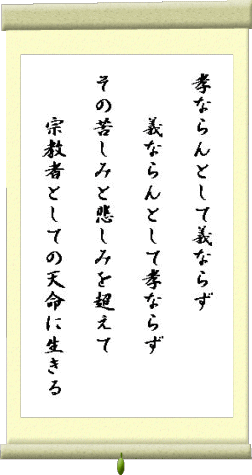 孝ならんとして義ならず
義ならんとして孝ならず
その苦しみと悲しみを超えて
宗教者としての天命に生きる